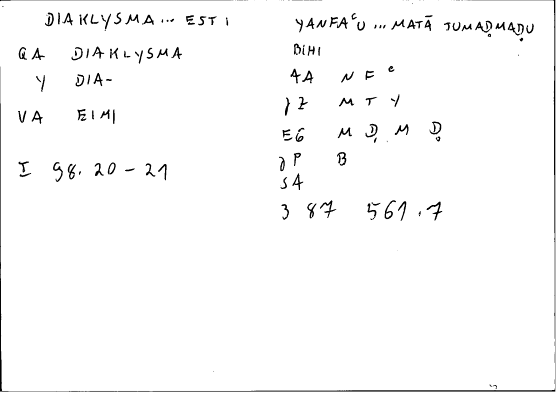 DIAKLYSMA ... ESTI
QA DIAKLYSMA
Y DIA-
VA EIMI
I 98.20-21
YANFAᶜU ... MATĀ JUMAḌMAḌU
BIHI
4A N F ᶜ
γZ M T Y
EG M Ḍ M Ḍ
γP B
SA
3 87 561.7